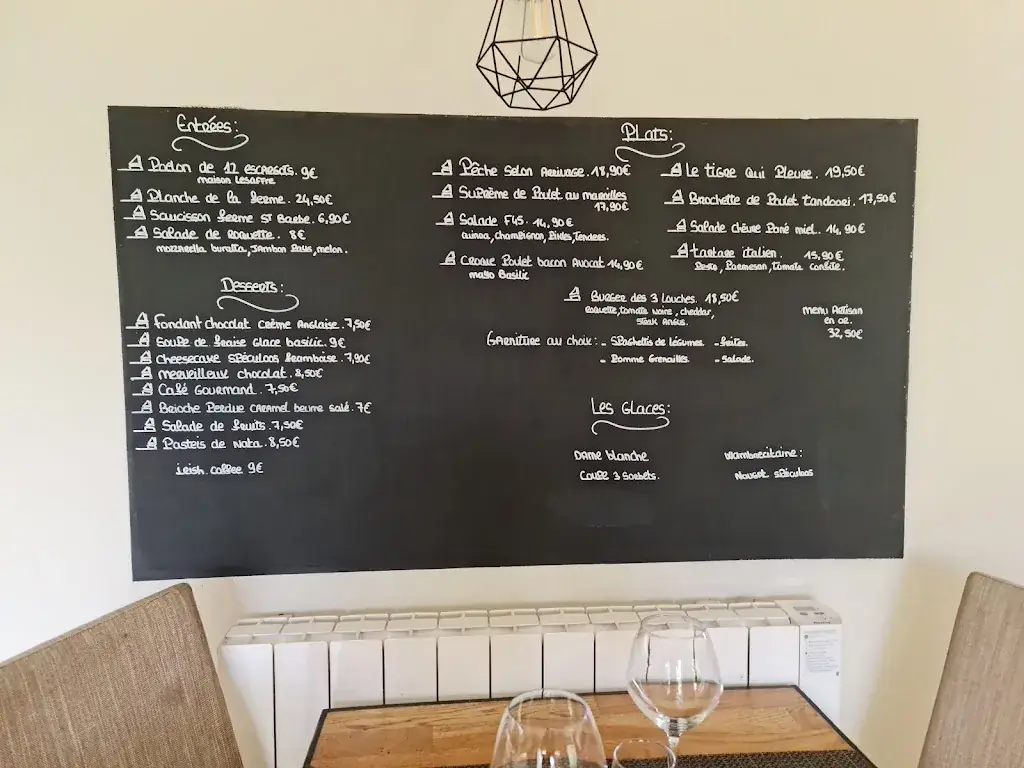 Entrées:
Poelon de 12 escargots. 9€
maison Lesaffre
Planche de la ferme. 24,50€
Saucisson ferme St Barbe. 6,90€
Salade de roquette. 8€
mozzarella buratta, Jambon Pays, melon.
Desserts:
fondant chocolat crème Anglaise. 7,50€
Soupe de fraise Glace basilic. 9€
Cheesecake Spéculoos framboise. 7,90€
merveilleux chocolat. 8,50€
Café Gourmand. 7,50€
Brioche Perdue caramel beurre salé. 7€
Salade de fruits. 7,50€
Pasteis de Nata. 8,50€
irish. coffee 9€
Plats:
Pêche Selon Arrivage. 18,90€
Suprême de Poulet au maroilles
17,90€
Salade F45. 14,90€
quinoa, champignon, Pickles, Tenders.
Croque Poulet bacon Avocat 14,90€
mayo Basilic
Le tigre Qui Pleure. 19,50€
Brochette de Poulet Tandoori. 17,50€
Salade chèvre Pané miel. 14,90€
tartare italien. 15,90€
Pesto, Parmesan, Tomate Confite.
Burger des 3 Louches. 18,50€
Roquette, tomate Noire, cheddar,
Steak Angus.
menu Artisan
en or.
32,50€
Garniture au choix: - Spaghettis de légumes. - frites.
- Pomme Grenailles. - Salade.
Les Glaces:
Dame blanche
Coupe 3 Sorbets.
Wambrecitaine:
Nougat Spéculoos